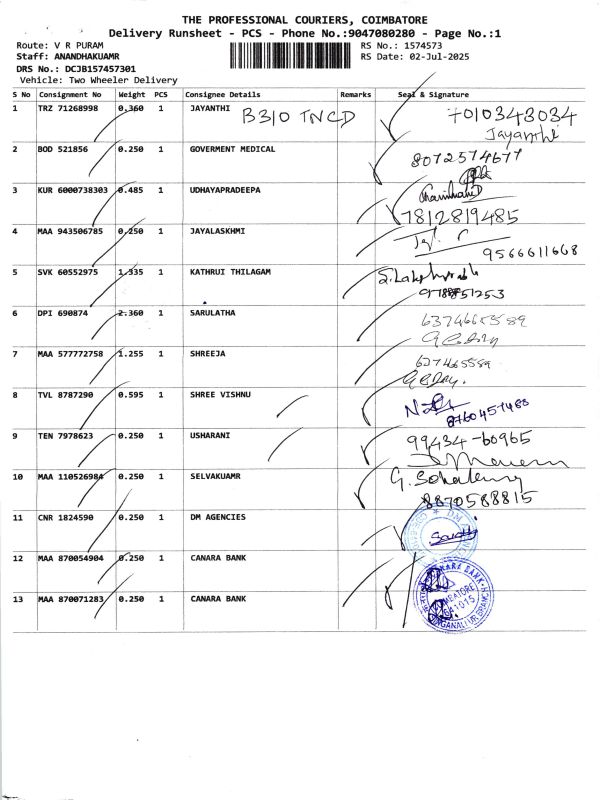 THE PROFESSIONAL COURIERS, COIMBATORE
Delivery Runsheet - PCS - Phone No.:9047080280 - Page No.:1
Route: V R PURAM RS No.: 1574573
Staff: ANANDHAKUAMR RS Date: 02-Jul-2025
DRS No.: DCJB157457301
Vehicle: Two Wheeler Delivery
S No Consignment No Weight PCS Consignee Details Remarks Seal & Signature
1 TRZ 71268998 0.360 1 JAYANTHI B310 TNCD 7010343034
Jayanthi
2 BOD 521856 0.250 1 GOVERMENT MEDICAL 8072574677
3 KUR 6000738303 0.485 1 UDHAYAPRADEEPA
7812819485
4 MAA 943506785 0.250 1 JAYALASKHMI
9566611668
5 SVK 60552975 1.335 1 KATHRUI THILAGAM
6 DPI 690874 2.360 1 SARULATHA
7 MAA 577772758 1.255 1 SHREEJA
8 TVL 8787290 0.595 1 SHREE VISHNU
8760457488
9 TEN 7978623 0.250 1 USHARANI 99434-60965
10 MAA 110526984 0.250 1 SELVAKUAMR
8870588815
11 CNR 1824590 0.250 1 DM AGENCIES
12 MAA 870054904 0.250 1 CANARA BANK
13 MAA 870071283 0.250 1 CANARA BANK